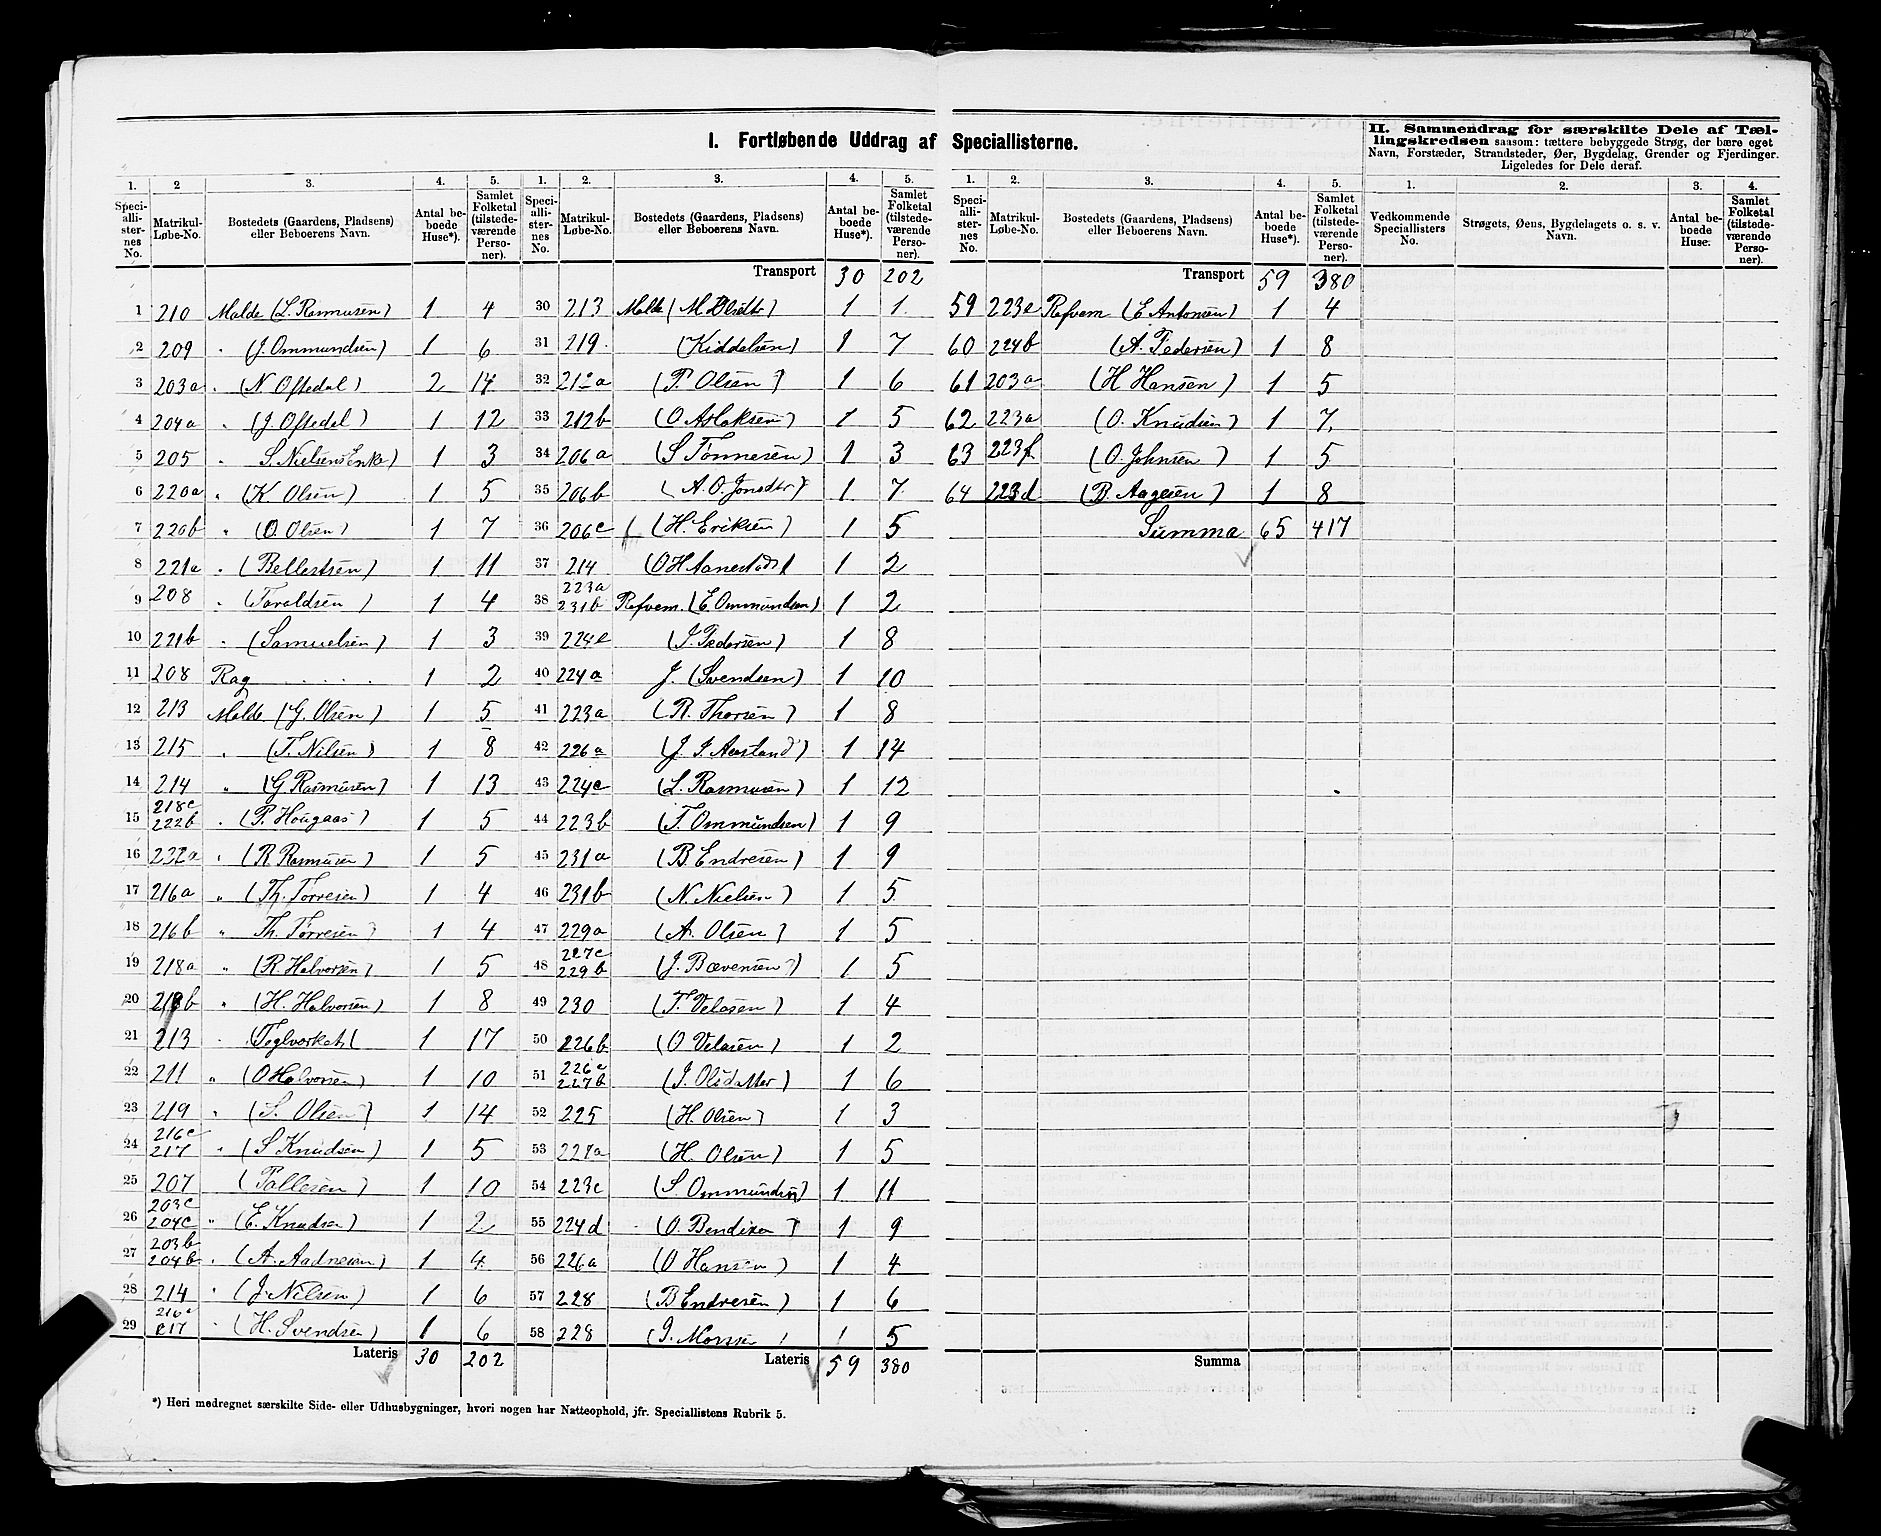 I. Fortløbende Uddrag af Speciallisterne.
II. Sammendrag for særskilte Dele af Tællingskredsen saasom: tættere bebyggede Strøg, der bære eget Navn, Forstæder, Strandsteder, Øer, Bygdelag, Grender og Fjerdinger. Ligeledes for Dele deraf.
1. 2 3. 4. 5.
Speciallisternes No. Matrikul-Løbe-No. Bostedets (Gaardens, Pladsens) eller Beboerens Navn. Antal beboede Huse*). Samlet Folketal (tilstedeværende Personer).
1 210 Malde (L. Rasmusen) 1 4
2 209 " (J. Ommundsen) 1 6
3 203a " (N. Oftedal) 2 14
4 204a " (J. Oftedal) 1 12
5 205 " S. Nielsens Enke) 1 3
6 220a " (K Olsen) 1 5
7 220b " (O. Olsen) 1 7
8 221a " (Bellestsen) 1 11
9 208 " (Toraldsen) 1 4
10 221b " (Samuelsen) 1 3
11 208 Rag 1 2
12 213 Malde (G. Olsen) 1 5
13 215 " (T. Nilsen) 1 8
14 214 " (G Rasmusen) 1 13
15 218c 222b " (P. Hougaas) 1 5
16 232a " (R Rasmusen) 1 5
17 216a " (Th. Torresen) 1 4
18 216b " Th. Torresen) 1 4
19 218a " (R. Halvorsen) 1 5
20 218b " (H. Halvorsen) 1 8
21 213 " (Teglværket) 1 17
22 211 " (O Halvorsen) 1 10
23 219 " (S. Olsen) 1 14
24 216c 217 " (S Knudsen) 1 5
25 207 (Pallesen) 1 10
26 203c 204c " (E. Knudsen) 1 2
27 203b 204b " (A. Aadnesen) 1 4
28 214 " (J. Nilsen) 1 6
29 216c 217 " (H. Svendsen) 1 6
Lateris 30 202
1. 2. 3. 4. 5.
Speciallisternes No. Matrikul-Løbe-No. Bostedets (Gaardens, Pladsens) eller Beboerens Navn. Antal beboede Huse*). Samlet Folketal (tilstedeværende Personer).
Transport 30 202
30 213 Malde (M Olsdtr) 1 1
31 219 (Kiddelsen) 1 7
32 212a (P. Olsen) 1 6
33 212b (O. Aslaksen) 1 5
34 206a (S Tönnesen) 1 3
35 206b (A. O. Jonsdtr) 1 7
36 206c (H. Eriksen) 1 5
37 214 (O H Aanestad) 1 2
38 223a 231b Refvem. (E. Ommundsen) 1 2
39 224e (J. Pedersen) 1 8
40 224a J. (Svendsen) 1 10
41 223a (R. Thorsen) 1 8
42 226a (J. J. Aarstand) 1 14
43 224c (L. Rasmusen) 1 12
44 223b (T. Ommundsen) 1 9
45 231a (B Endresen) 1 9
46 231b (N. Nielsen) 1 5
47 229a (A. Olsen) 1 5
48 227c 229b (J. Bævensen) 1 5
49 230 (T. Velasen) 1 4
50 226b (O Velasen) 1 2
51 226c 227b (J. Olsdatter) 1 6
52 225 (H. Olsen) 1 3
53 227a (H. Olsen) 1 5
54 223c (S. Ommundsen) 1 11
55 224d (O. Bendixen) 1 9
56 226a (O Hansen) 1 4
57 228 (B Endresen) 1 6
58 228 (J. Monsen) 1 5
Lateris 59 380
1. 2. 3. 4. 5.
Speciallisternes No. Matrikul-Løbe-No. Bostedets (Gaardens, Pladsens) eller Beboerens Navn. Antal beboede Huse*). Samlet Folketal (tilstedeværende Personer).
Transport 59 380
59 223e Refvem (E Antonsen) 1 4
60 224b (A. Pedersen) 1 8
61 203a (H Hansen) 1 5
62 223a (O. Knudsen) 1 7
63 223f (O. Johnsen) 1 5
64 223d (B. Aagesen) 1 8
Summa 65 417
Summa
1. 2. 3. 4.
Vedkommende Speciallisters No. Strøgets, Øens, Bygdelagets o. s. v. Navn. Antal beboede Huse. Samlet Folketal (tilstedeværende Personer).
*) Heri medregnet særskilte Side- eller Udhusbygninger, hvori nogen har Natteophold, jfr. Speciallistens Rubrik 5.